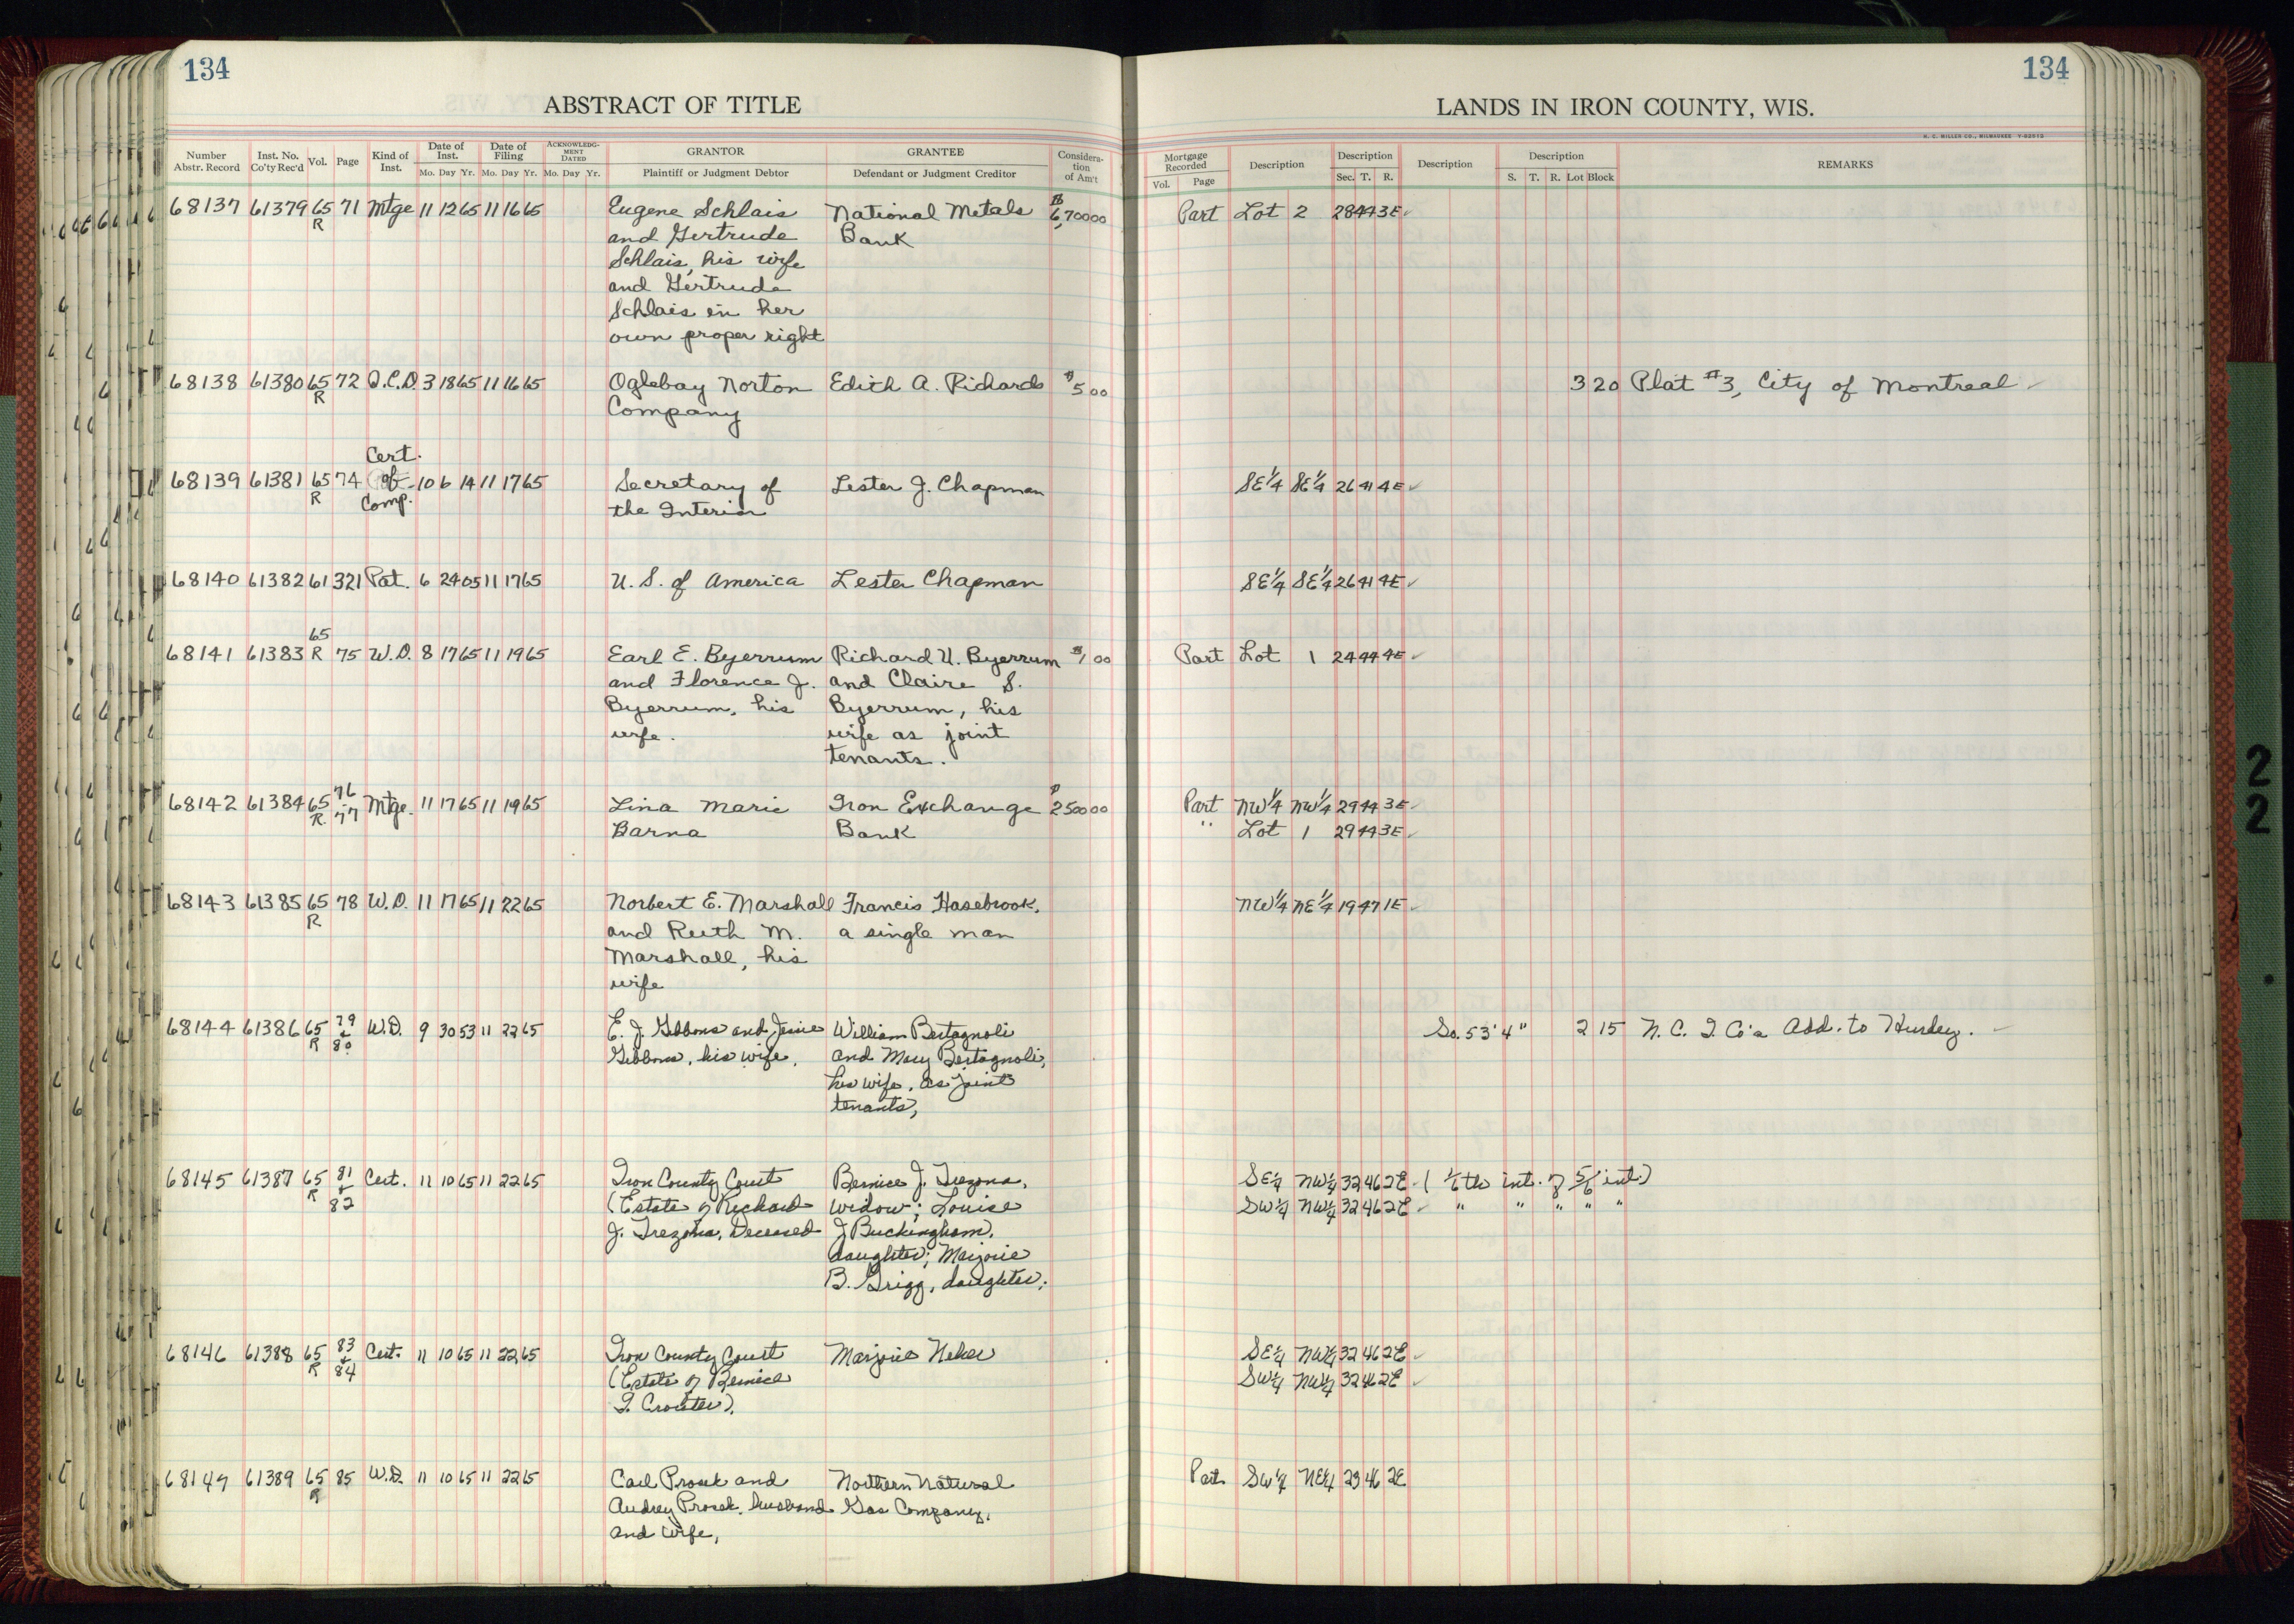 134
134
ABSTRACT OF TITLE
LANDS IN IRON COUNTY, WIS.
H. C. MILLER CO., MILWAUKEE
Number Abstr. Record
Inst. No. Co'ty Rec'd
Vol.
Page
Kind of Inst.
Date of Inst.
Mo. Day Yr.
Date of Filing
Mo. Day Yr.
ACKNOWLEDG-MENT DATED
Mo. Day Yr.
GRANTOR
Plaintiff or Judgment Debtor
GRANTEE
Defendant or Judgment Creditor
Considera-tion of Am't
Mortgage Recorded
Vol. Page
Description
Description
Sec. T. R.
Description
Description
S. T. R. Lot Block
REMARKS
68137 61379 65 71 Mtge 11 12 65 11 16 65 Eugene Schlais National Metals $6,700 00 Part Lot 2 28 44 3E
R and Gertrude Bank
Schlais, his wife
and Gertrude
Schlais in her
own proper right
68138 61380 65 72 Q.C.D. 3 18 65 11 16 65 Oglebay Norton Edith A. Richards $5 00 3 20 Plat #3, City of Montreal
R Company
Cert.
68139 61381 65 74 of 10 6 14 11 17 65 Secretary of Lester J. Chapman SE 1/4 SE 1/4 26 41 4E
R Comp. the Interior
68140 61382 61 321 Pat. 6 24 05 11 17 65 U. S. of America Lester Chapman SE 1/4 SE 1/4 26 41 4E
65
68141 61383 R 75 W.D. 8 17 65 11 19 65 Earl E. Byerrum Richard U. Byerrum $1 00 Part Lot 1 24 44 4E
and Florence J. and Claire S.
Byerrum, his Byerrum, his
wife. wife as joint
tenants.
68142 61384 65 76 - 77 Mtge. 11 17 65 11 19 65 Lina Marie Iron Exchange $2500 00 Part NW 1/4 NW 1/4 29 44 3E
R. Barna Bank " Lot 1 29 44 3E
68143 61385 65 78 W.D. 11 17 65 11 22 65 Norbert E. Marshall Francis Hasebrook, NW 1/4 NE 1/4 19 47 1E
R and Ruth M. a single man
Marshall, his
wife
68144 61386 65 79 + 80 W.D. 9 30 53 11 22 65 E. J. Gibbons and Jessie William Bertagnoli So. 53' 4" 2 15 N. C. I. Co's Add. to Hurley.
R Gibbons, his wife, and Mary Bertagnoli,
his wife, as joint
tenants,
68145 61387 65 81 + 82 Cert. 11 10 65 11 22 65 Iron County Court Bernice J. Trezona, SE 1/4 NW 1/4 32 46 2E (1/6th int. of 5/6 int.)
R (Estate of Richard widow; Louise SW 1/4 NW 1/4 32 46 2E " " " " "
J. Trezona, Deceased J Buckingham,
daughter; Marjorie
B. Grigg, daughter;
68146 61388 65 83 + 84 Cert. 11 10 65 11 22 65 Iron County Court Marjorie Neher SE 1/4 NW 1/4 32 46 2E
R (Estate of Bernice SW 1/4 NW 1/4 32 46 2E
T. Crouter).
68147 61389 65 85 W.D. 11 10 65 11 22 65 Carl Prosek and Northern Natural Part SW 1/4 NE 1/4 23 46 2E
R Audrey Prosek, husband Gas Company,
and wife,
2
2